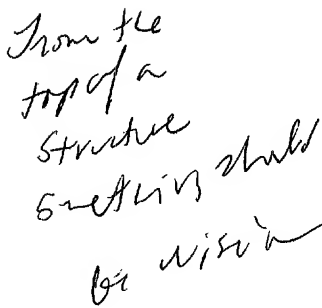 From the
top of a
structure
something should
be visin